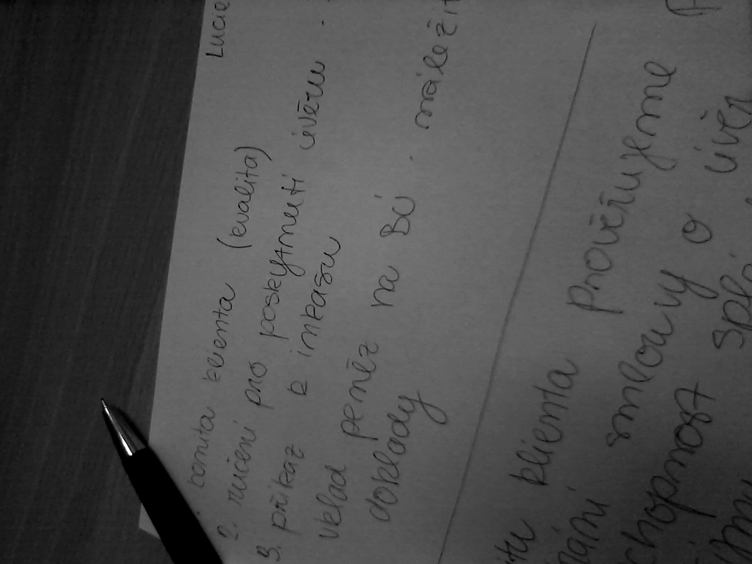 Lucie
bonita klienta (kvalita)
2. ručení pro poskytnutí úvěru.
3. příkaz k inkasu
vklad peněz na BÚ. náleži
doklady
itu klienta prověřujeme
smlouvy o úvěr
chopnost